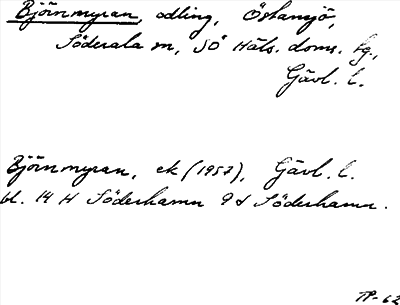 Björnmyran, odling, Östansjö,
Söderala sn, SÖ Häls. doms. fg.,
Gävl. l.
Björnmyran, ek (1957), Gävl. l.
bl. 14 H Söderhamn 9 d Söderhamn.
TP-62